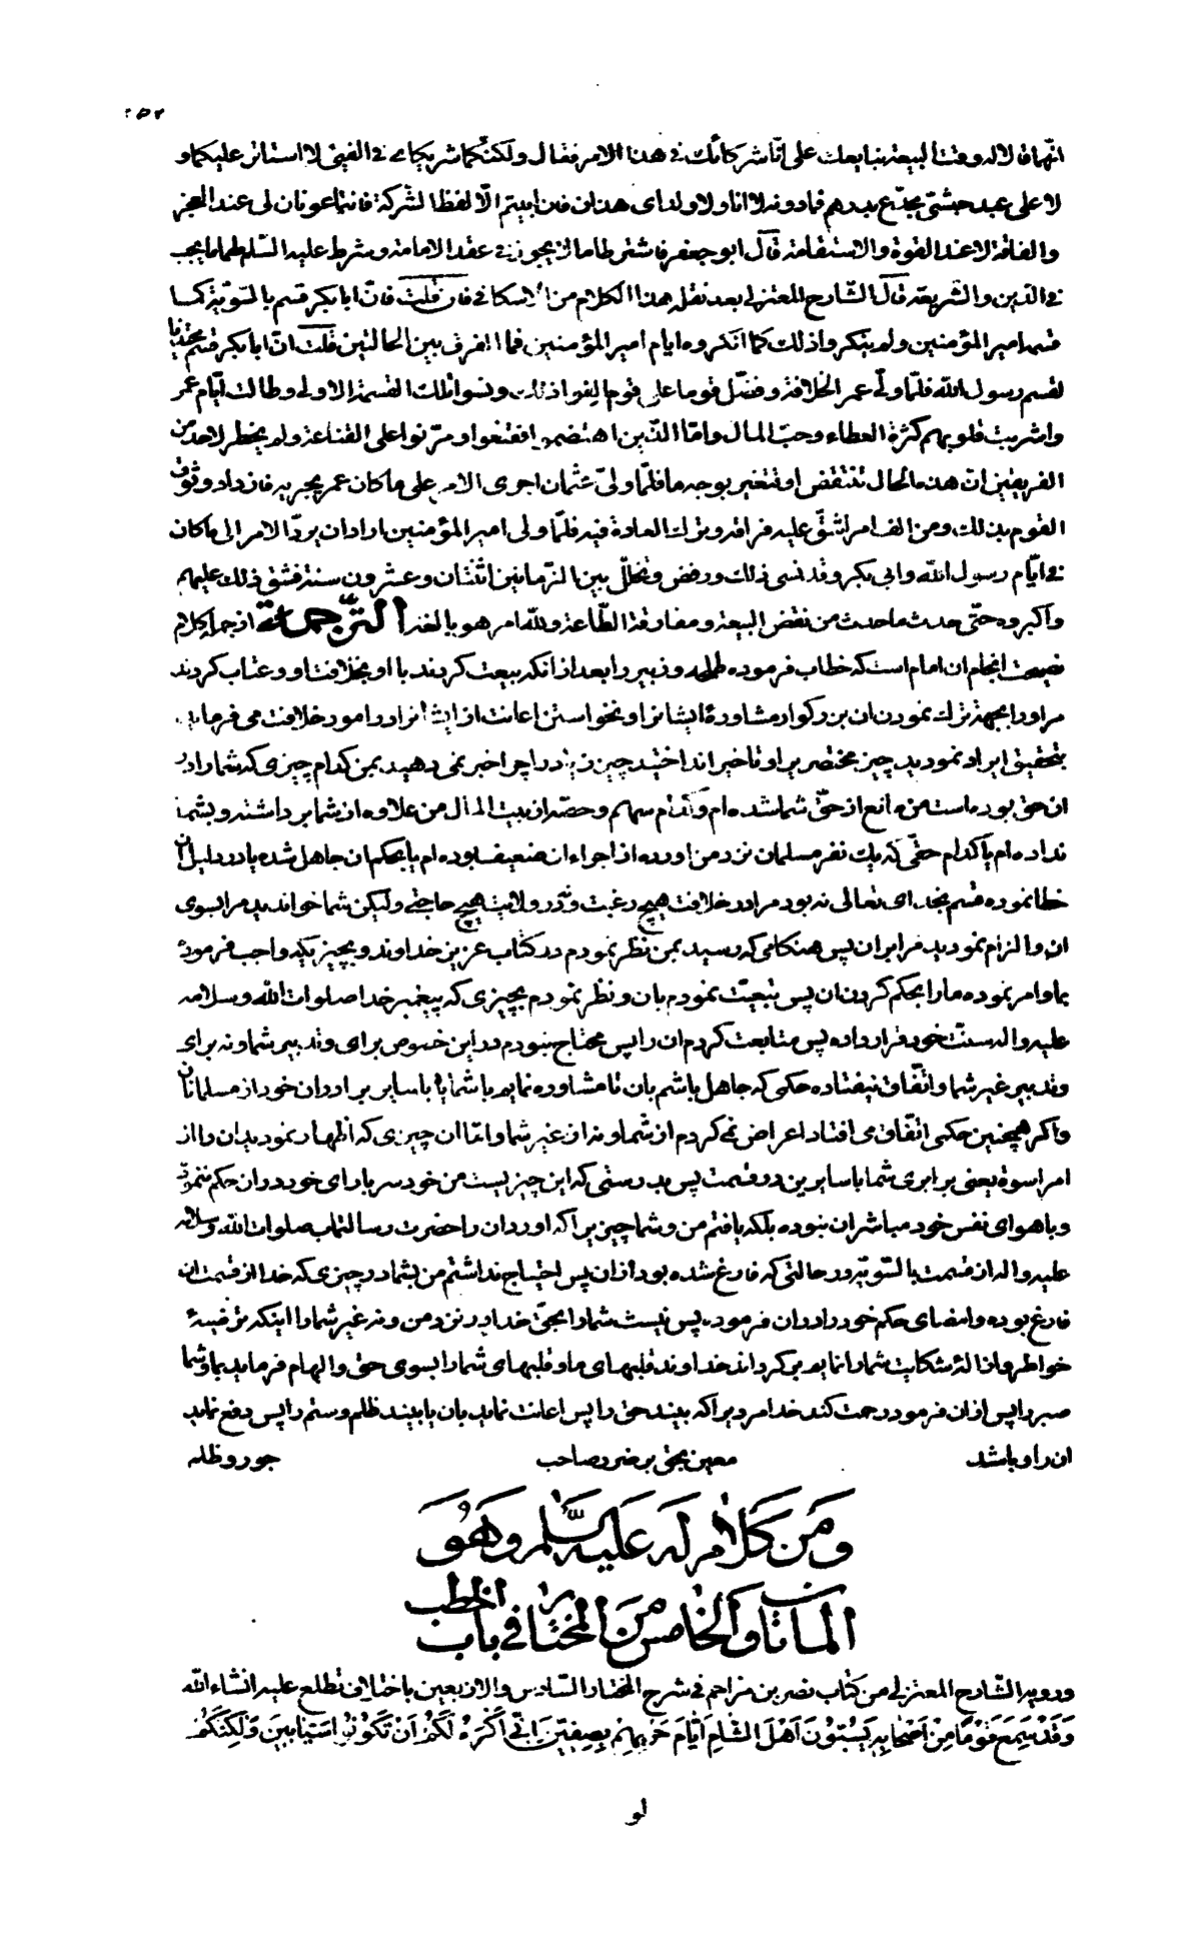 انّهما قالا له وقت البيعة نبايعك على انّا شركائك فى هذا الامر فقال ولكنّكما شريكاى فى الفيئ لا استاثر عليكما و
لا على عبد حبشيّ مجدّع بدرهم فما دونه لا انا ولا ولداى هذان فان ابيتم الّا لفظ الشركة فانتما عونان لى عند العجز
والفاقة لا عند القوة والاستقامة قال ابو جعفر فاشترطا ما لا يجوز فى عقد الامامة وشرط عليه السّلام لهما ما يجب
فى الدّين والشّريعة قال الشّارح المعتزلى بعد نقل هذا الكلام من الاسكافى فان قلت فانّ ابا بكر قسم بالسّويّة كما
قسمه امير المؤمنين ولم ينكروا ذلك كما انكروه ايام امير المؤمنين فما الفرق بين الحالتين قلت انّ ابا بكر قسم محتذيا
لقسم رسول الله فلمّا ولّى عمر الخلافة وفضّل قوما على قوم الفوا ذلك ونسوا تلك القسمة الاولى وطالت ايّام عمر
واشربت قلوبهم كثرة العطاء وحبّ المال وامّا الذّين اهتضموا فقنعوا ومرّنوا على القناعة ولم يخطر لاحد من
الفريقين انّ هذه الحال تنتقض او تتغير بوجه ما فلمّا ولىّ عثمان اجرى الامر على ما كان عمر يجريه فازداد وثوق
القوم بذلك ومن الف امرا شقّ عليه فراقه وترك العادة فيه فلمّا ولى امير المؤمنين اراد ان يردّ الامر الى ما كان
فى ايّام رسول الله وابى بكر وقد نسى ذلك ورفض وتخلّل بين الزمانين اثنتان وعشرون سنة فشقّ ذلك عليهم
واكبروه حتّى حدث ما حدث من نقض البيعة ومفارقة الطّاعة ولله امر هو بالغه الترجمة از جمله كلام
نصيحت انجام ان امام است كه خطاب فرموده طلحه وزبير را بعد از انكه بيعت كردند با او بخلافت او وعتاب كردند
مر او را بجهة ترك نمودن ان بزركوار مشاورهٔ ايشانرا ونخواستن اعانت از ايشانرا در امور خلافت مى فرمايد
بتحقيق ايراد نموديد چيز مختصريرا وتاخير انداختيد چيز زياد را چرا خبر نمى دهيد بمن كدام چيزى كه شما را در
ان حق بوده است من مانع از حقّ شما شده ام وكدام سهم وحصّه از بيت المال من علاوه از شما برداشته و بشما
نداده ام يا كدام حقّى كه يك نفر مسلمان نزد من اورده از اجراء ان ضعيف بوده ام يا بحكم ان جاهل شده يا در دليل ان
خطا نموده قسم بخداى تعالى نه بود مرا در خلافت هيچ رغبت و نه در ولايت هيچ حاجتى وليكن شما خوانديد مرا بسوى
ان والزام نموديد مرا بران پس هنكامى كه رسيد بمن نظر نمودم در كتاب عزيز خداوند و بچيزيكه واجب فرموده
بما و امر نموده ما را بحكم كردن ان پس تبعيّت نمودم بان ونظر نمودم بچيزى كه پيغمبر خدا صلوات الله وسلامه
عليه واله سنّت خود قرار داده پس متابعت كردم ان را پس محتاج نبودم در اين خصوص براى وتدبير شما ونه براى
وتدبير غير شما واتّفاق نيفتاده حكمى كه جاهل باشم بان تا مشاوره نمايم با شما يا با ساير برادران خود از مسلمانان
واكر همچنين حكمى اتّفاق مى افتاد اعراض نمى كردم از شما ونه از غير شما وامّا ان چيزى كه اظهار نموديد ان را از
امر اسوة يعنى برابرى شما با سايرين در قسمت پس بدرستى كه اين چيزيست من خودسر با راى خود در ان حكم ننمود
و با هواى نفس خود مباشر ان نبوده بلكه يافتم من وشما چيزيرا كه اورد ان را حضرت رسالتماب صلوات الله وسلامه
عليه واله از قسمت بالسّويّة در حالتى كه فارغ شده بود از ان پس احتياج نداشتم من بشما در چيزى كه خدا از قسمت ان
فارغ بوده وامضاى حكم خود را در ان فرموده پس نيست شما را بحقّ خدا در نزد من ونه غير شما را اينكه ترضيهٔ
خواطر و ازالهٔ شكايت شما را نمايم بركرداند خداوند قلبهاى ما و قلبهاى شما را بسوى حق والهام فرمايد بما وشما
صبر را پس از ان فرمود رحمت كند خدا مرديرا كه بيند حق را پس اعانت نمايد بان يا بيند ظلم وستم را پس دفع نمايد
ان را و باشد معين بحق بر ضرر صاحب جور و ظلم
ومن كلام له عليه السّلام وهو
المأتان والخامس من المختار فى باب الخطب
ورويه الشّارح المعتزلى من كتاب نصر بن مزاحم فى شرح المختار السّادس والاربعين باختلاف تطلع عليه انشاء الله
وَقَدْ سَمِعَ قَوْمًا مِنْ اَصْحابِهِ يَسُبّونَ اَهْلَ الشّامِ اَيّامَ حَرْبِهِمْ بِصِفّينَ اِنّى اَكْرَهُ لَكُمْ اَنْ تَكُونُوا سَبّابينَ وَلكِنّكُمْ
لو